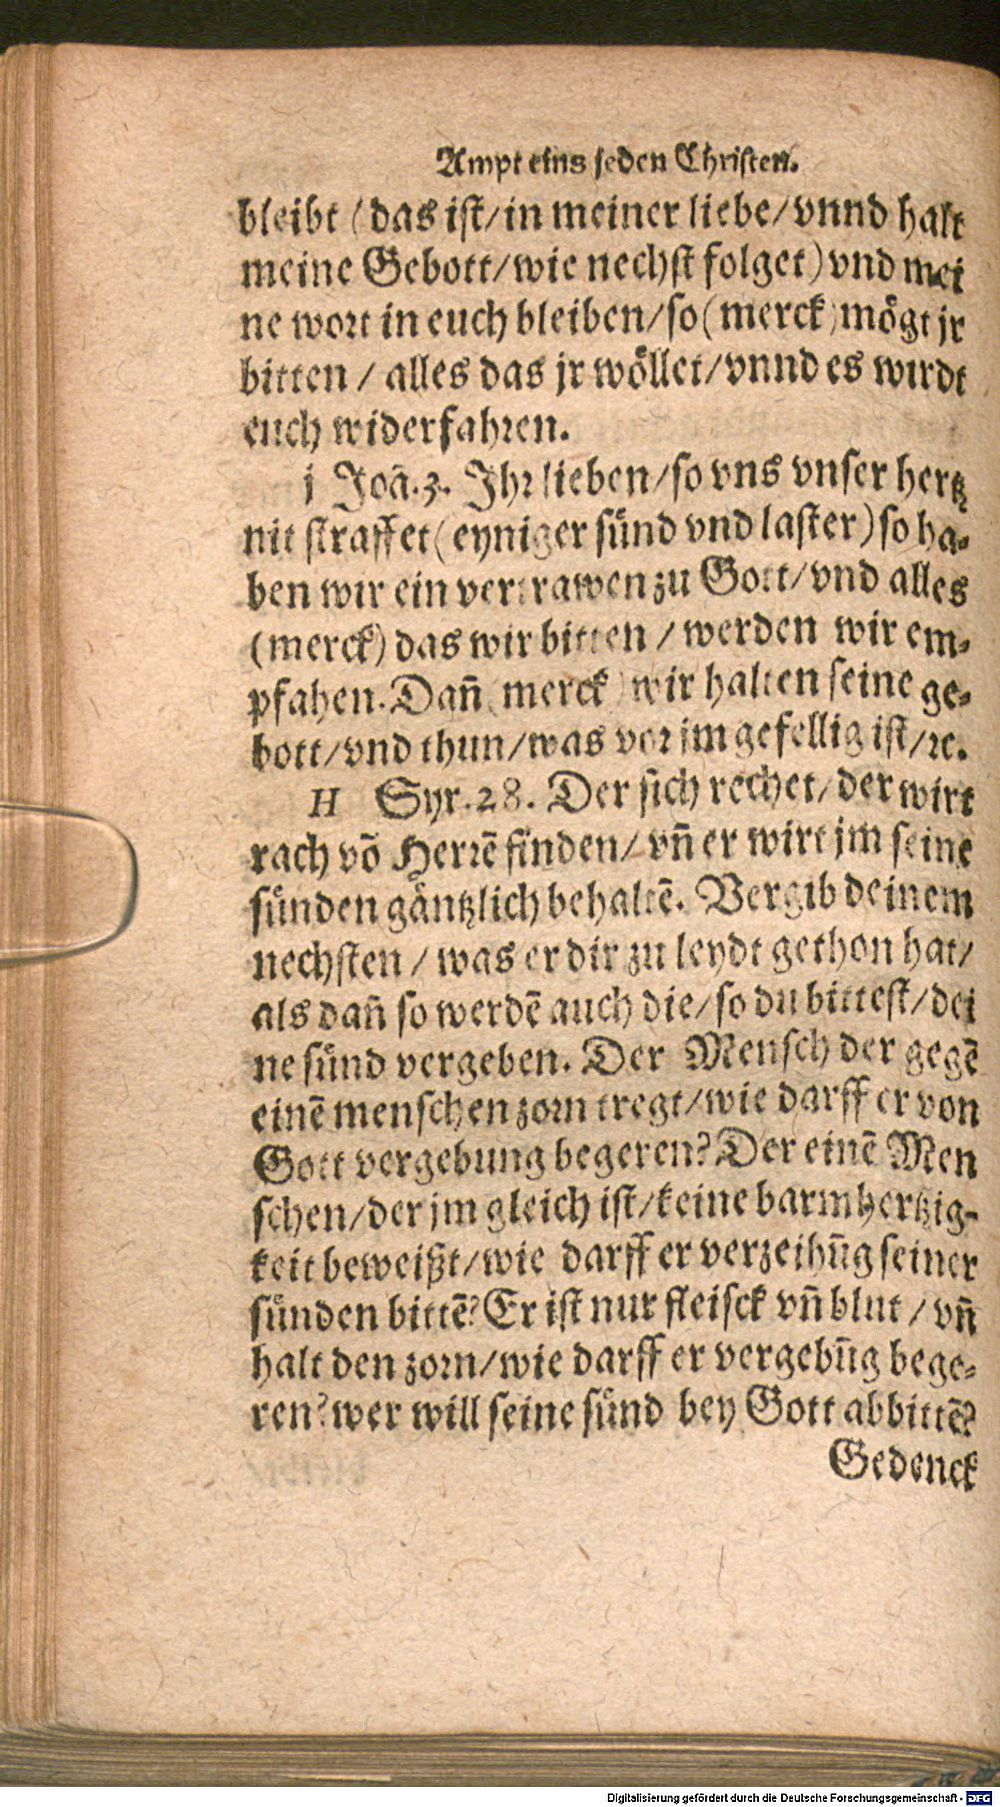 Ampt eins jeden Christen.
bleibt (das ist/in meiner liebe/vnnd halt
meine Gebott/wie nechst folget) vnd mei
ne wort in euch bleiben/so (merck) mögt jr
bitten / alles das jr wöllet/vnnd es wirdt
euch widerfahren.
j Joã.3. Ihr lieben/so vns vnser hertz
nit straffet (eyniger sünd vnd laster) so ha-
ben wir ein vertrawen zu Gott/vnd alles
(merck) das wir bitten / werden wir em-
pfahen. Dañ (merck) wir halten seine ge-
bott/vnd thun/was vor jm gefellig ist/ꝛc.
H Syr.28. Der sich rechet/der wirt
rach võ Herrẽ finden/vñ er wirt jm seine
sünden gäntzlich behaltẽ. Vergib deinem
nechsten / was er dir zu leydt gethon hat/
als dañ so werdẽ auch die/so du bittest/dei
ne sünd vergeben. Der Mensch der gegẽ
einẽ menschen zorn tregt/wie darff er von
Gott vergebung begeren? Der einẽ Men
schen/der jm gleich ist/keine barmhertzig-
keit beweißt/wie darff er verzeihũg seiner
sünden bittẽ? Er ist nur fleisck vñ blut / vñ
halt den zorn/wie darff er vergebũg bege-
ren? wer will seine sünd bey Gott abbittẽ?
Gedenck
Digitalisierung gefördert durch die Deutsche Forschungsgemeinschaft - DFG